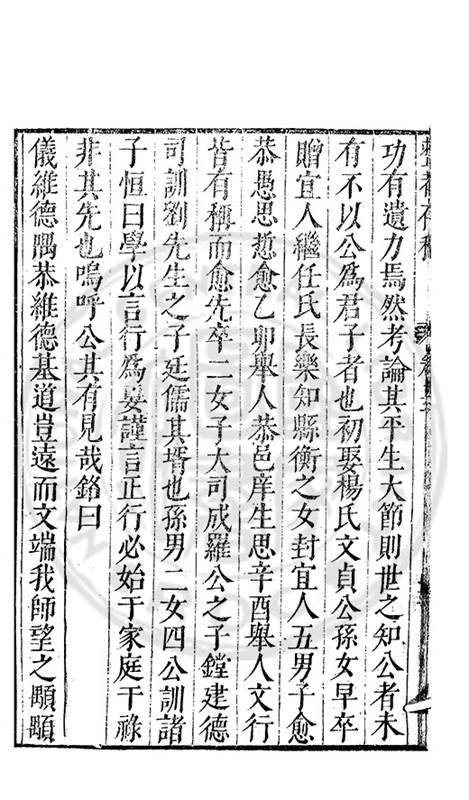 功有遺力焉然考論其平生大節則世之知公者未
有不以公爲君子者也初娶楊氏文貞公孫女早卒
贈宜人繼任氏長樂知縣衡之女封宜人五男子愈
恭愚思愻愈乙卯舉人恭邑庠生思辛酉舉人文行
皆有稱而愈先卒二女子大司成羅公之子鏜建德
司訓劉先生之子廷儒其壻也孫男二女四公訓諸
子恒曰學以言行爲要謹言正行必始于家庭干祿
非其先也嗚呼公其有見哉銘曰
儀維德隅恭維德基道豈遠而文端我師望之顒顒